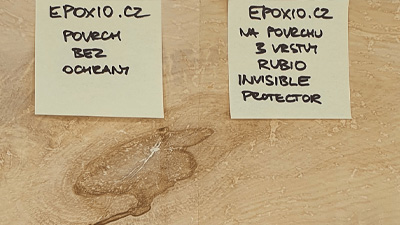 EPOXIO.CZ
POVRCH
BEZ
OCHRANY
EPOXIO.CZ
NA POVRCHU
3 VRSTVY
RUBIO
INVISIBLE
PROTECTOR